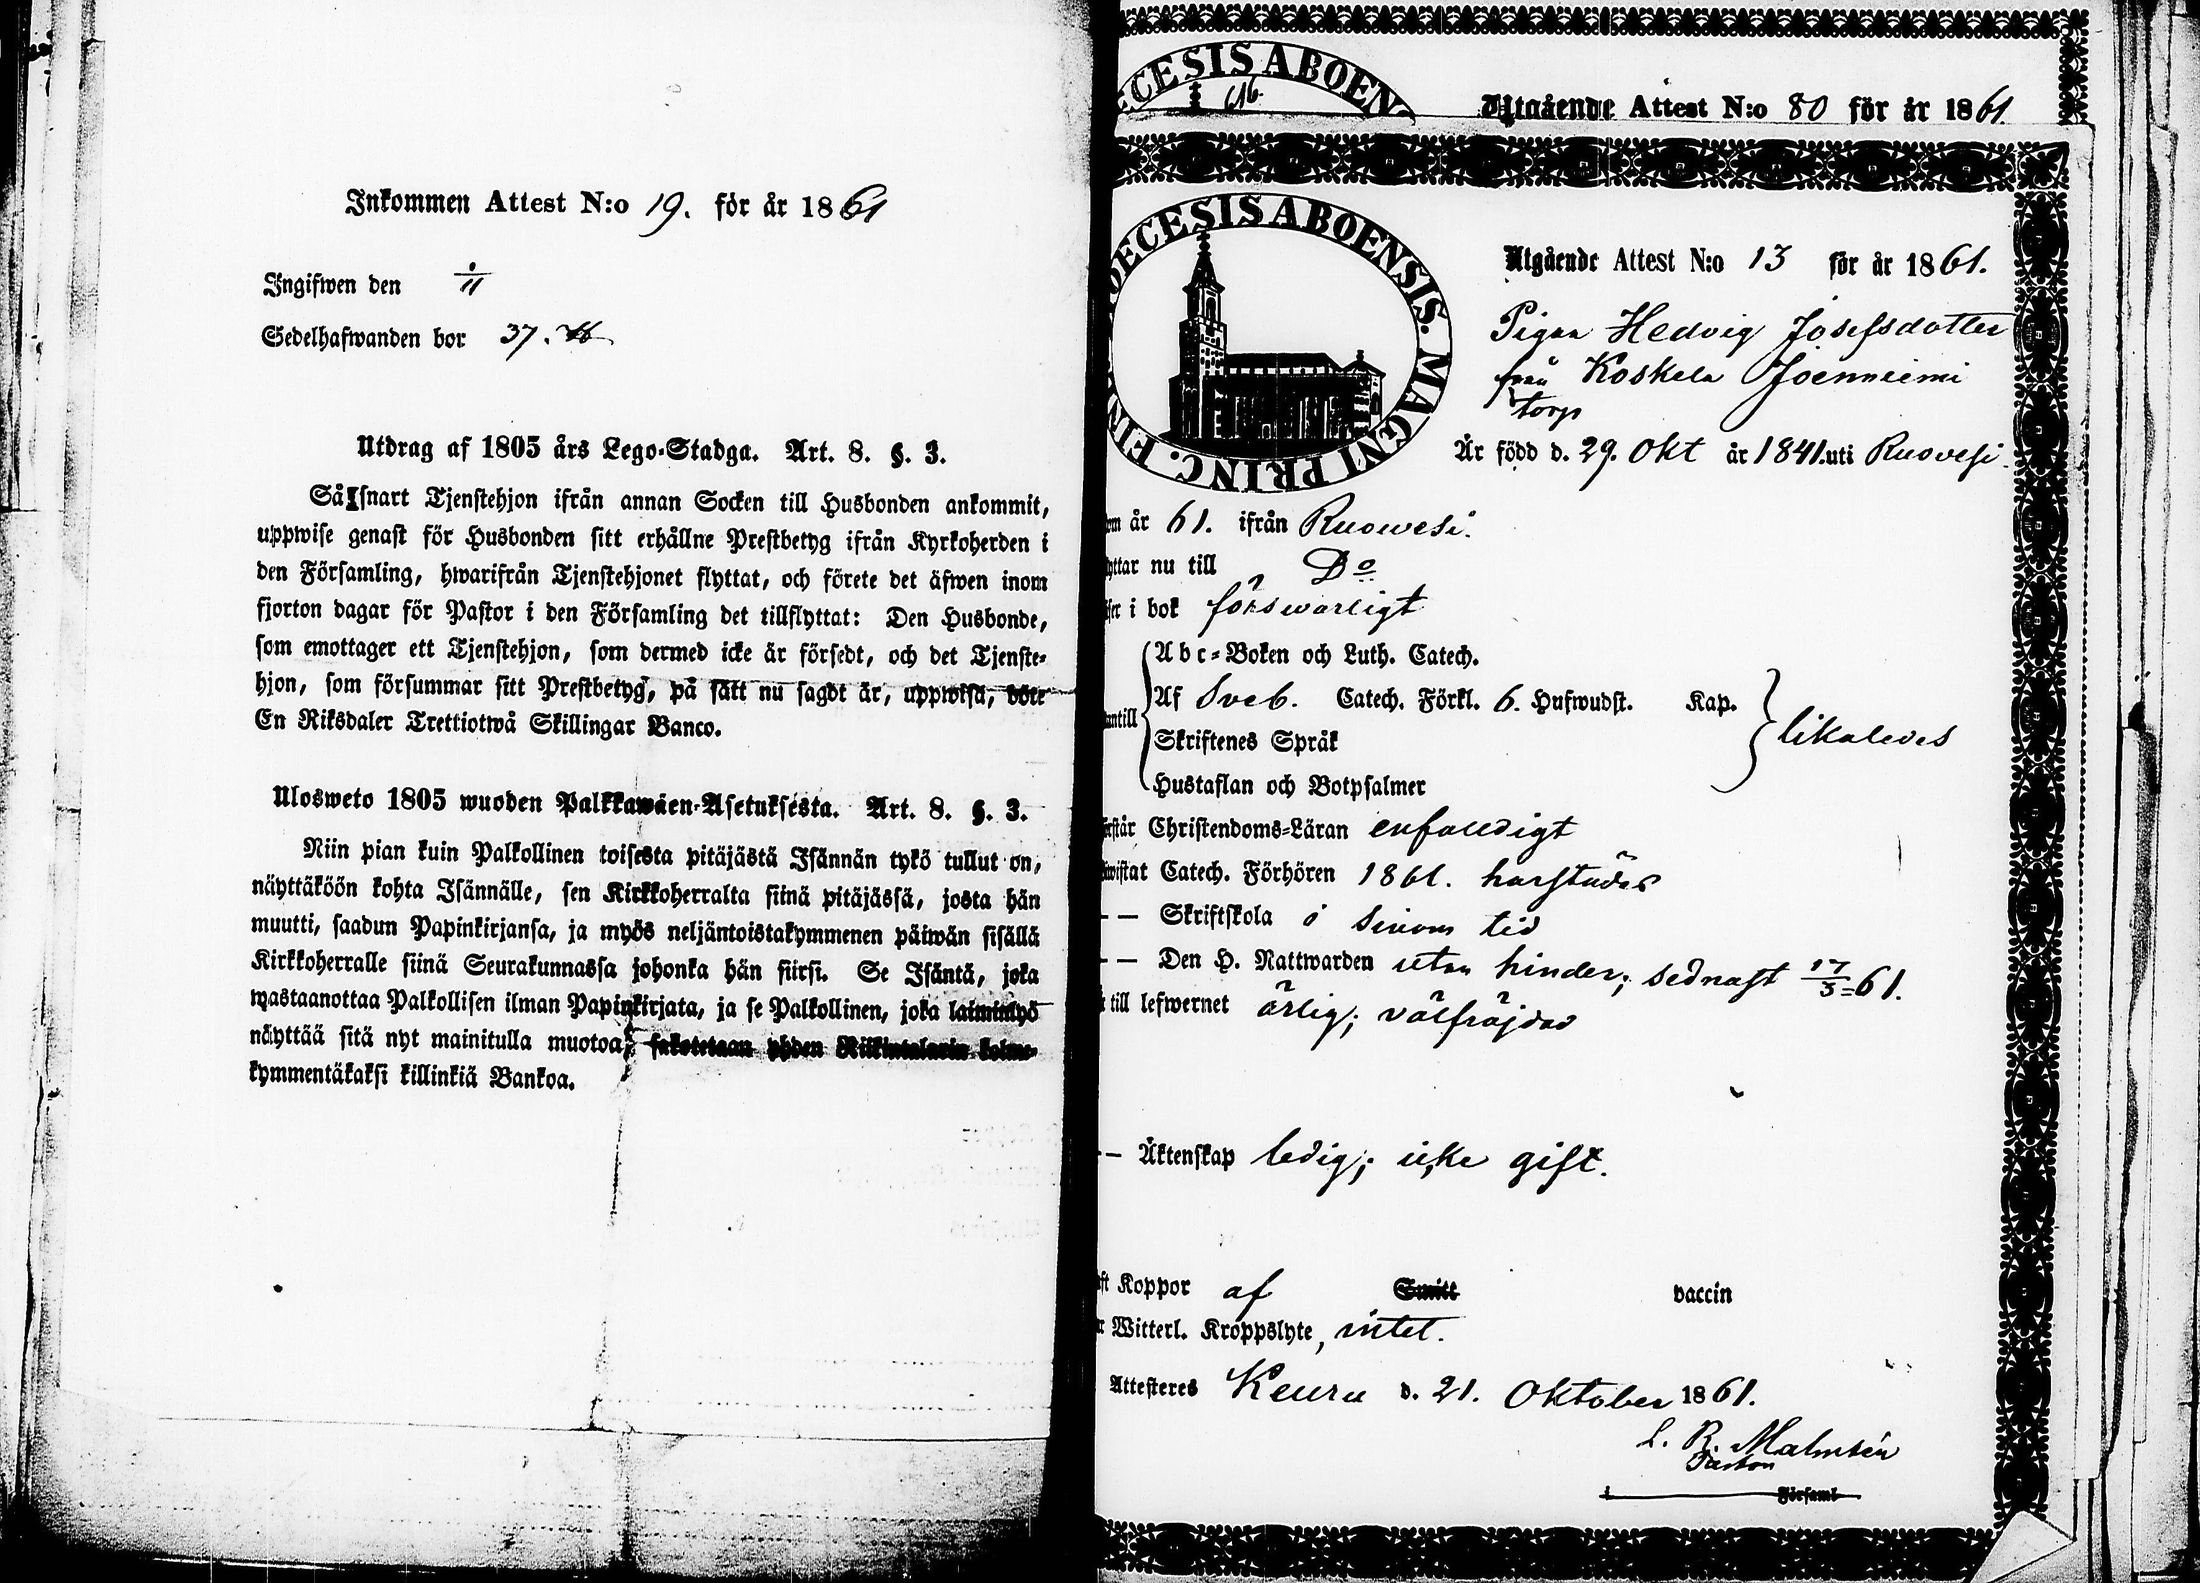 Inkommen Attest N:o 19. för år 1861
Ingifwen den /11
Sedelhafwanden bor 37.
Utdrag af 1805 års Lego-Stadga. Art. 8. §. 3.
Så snart Tjenstehjon ifrån annan Socken till Husbonden ankommit,
uppwise genast för Husbonden sitt erhållne Prestbetyg ifrån Kyrkoherden i
den Församling, hwarifrån Tjenstehjonet flyttat, och förete det äfwen inom
fjorton dagar för Pastor i den Församling det tillflyttat: Den Husbonde,
som emottager ett Tjenstehjon, som dermed icke är försedt, och det Tjenste-
hjon, som försummar sitt Prestbetyg, på sätt nu sagdt är, uppwisa, böte
En Riksdaler Trettiotwå Skillingar Banco.
Ulosweto 1805 wuoden Palkkawäen-Asetuksesta. Art. 8. §. 3.
Niin pian kuin Palkollinen toisesta pitäjästä Isännän tykö tullut on,
näyttäköön kohta Isännälle, sen Kirkkoherralta siinä pitäjässä, josta hän
muutti, saadun Papinkirjansa, ja myös neljäntoistakymmenen päiwän sisällä
Kirkkoherralle siinä Seurakunnassa johonka hän siirsi. Se Isäntä, joka
wastaanottaa Palkollisen ilman Papinkirjata, ja se Palkollinen, joka laiminlyö
näyttää sitä nyt mainitulla muotoa, sakotetaan yhden Riikintalarin kolme-
kymmentäkaksi killinkiä Bankoa.
ECESIS ABOEN
Utgående Attest N:o 80 för år 1861.
DECESIS ABOENSIS. MAGNI PRINC. FIN
Utgående Attest N:o 13 för år 1861.
Pigan Hedvig Josefsdotter
från Koskela Joenniemi
torp
Är född d. 29. Okt år 1841. uti Ruovesi.
om år 61. ifrån Ruowesi.
yttar nu till Do
äser i bok förswarligt
Abc-Boken och Luth. Catech.
antill Af Sveb. Catech. Förkl. 6. Hufwudst. Kap.
Skriftenes Språk likaledes
Hustaflan och Botpsalmer
örstår Christendoms-Läran enfaldigt
wistat Catech. Förhören 1861. härstädes
— Skriftskola i sinom tid
— Den H. Nattwarden utan hinder; sednast 17/3 61.
till lefwernet ärlig; välfräjdad
— Äktenskap ledig; icke gift.
aft Koppor af Smitt vaccin
r Witterl. Kroppslyte, intet.
Attesteres Keuru d. 21. Oktober 1861.
L. R. Malmsén
Pastor
i Församl